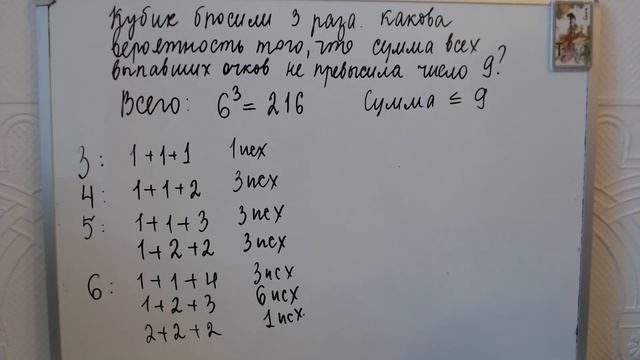 Кубик бросили 3 раза. Какова
вероятность того, что сумма всех
выпавших очков не превысила число 9?
Всего: 6³ = 216 Сумма ≤ 9
3: 1+1+1 1 исх
4: 1+1+2 3 исх
5: 1+1+3 3 исх
1+2+2 3 исх
6: 1+1+4 3 исх
1+2+3 6 исх
2+2+2 1 исх.